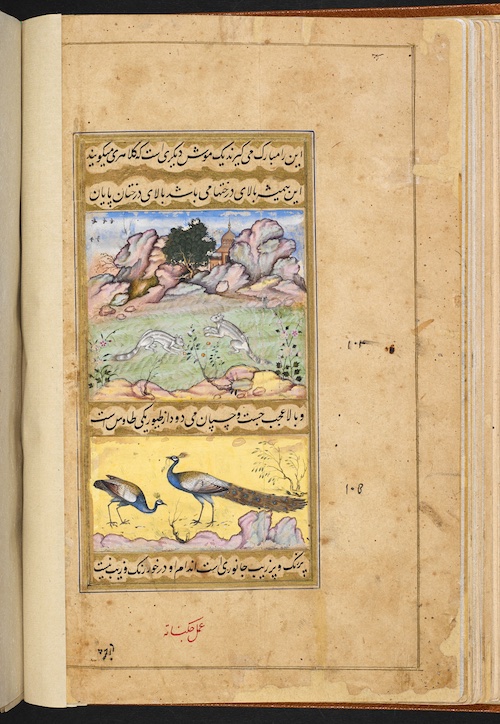 این را مبارک می گیرند یک موش دیگری است که گلهری میگویند
این همیشه بالای درختها می باشد بالای درختان پایان
و بالا عجب جست و چسپان می دود از طیور یکی طاوس ست
پرنگ و پر زیب جانوری است اندام او در خور رنگ و زیب نیست
عمل